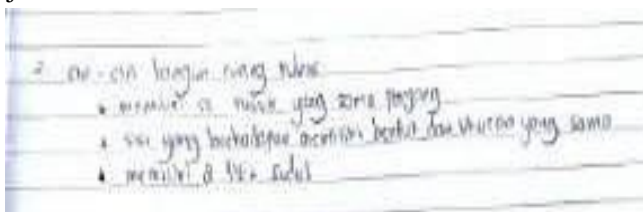 2. ciri-ciri bangun ruang kubus
• memiliki 12 rusuk yang sama panjang
• sisi yang berhadapan memiliki bentuk dan ukuran yang sama
• memiliki 8 titik sudut